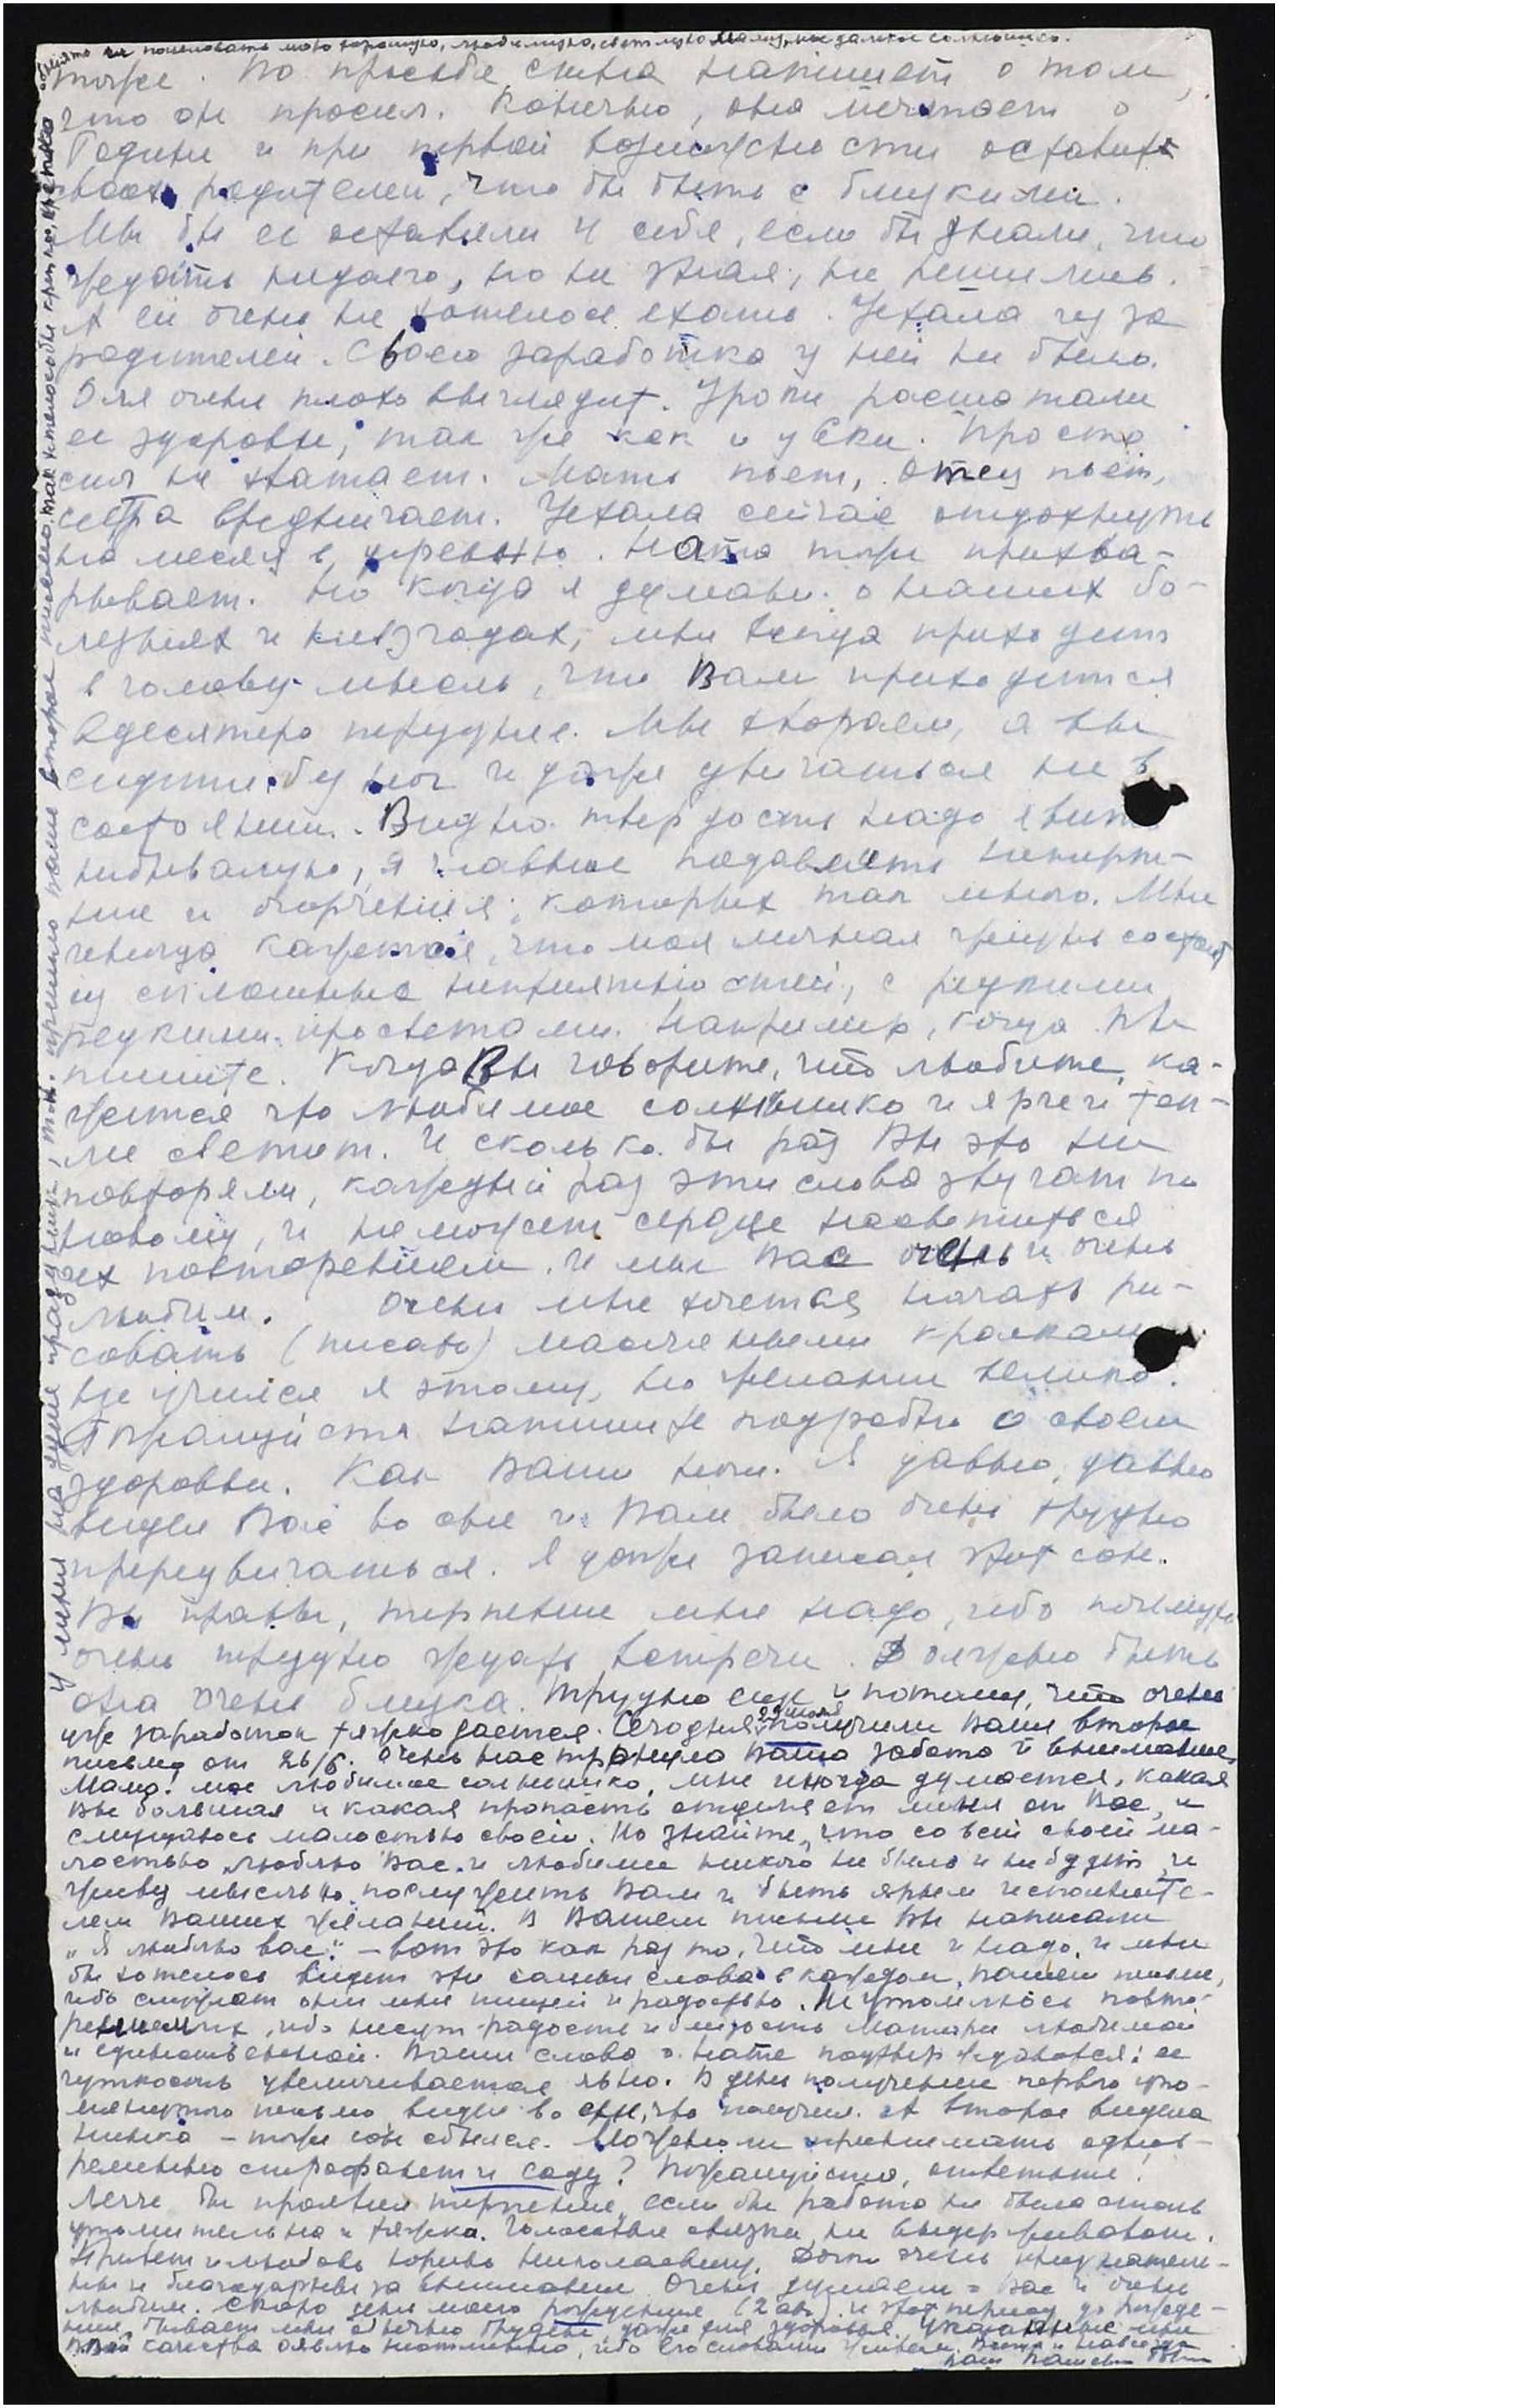 обнять и поцеловать мою хорошую, любимую, светлую Маму, мое далекое солнышко.
тоже. По просьбе сына напишет о том,
что он просил. Конечно, она мечтает о
Родине и при первой возможности оставит
своих родителей, что бы быть с близкими.
Мы бы ее оставили у себя, если бы знали, что
ждать недолго, но не зная, не решились.
А ей очень не хотелось ехать. Уехала из за
родителей. Своего заработка у ней не было.
Оля очень плохо выглядит. Уроки расшатали
ее здоровье, так же как и у Еки. Просто
сил не хватает. Мать поет, отец пьет,
сестра взвизгивает. Уехала сейчас отдохнуть
на месяц в деревню. Ната тоже прихва-
рывает. Но когда я думаю о наших бо-
лезнях и невзгодах, мне всегда приходит
в голову мысль, что Вам приходится
вдесятеро труднее. Мы хвораем, а Вы
сидите без ног и даже двигаться не в
состоянии. Видно твердость надо явить
небывалую, а главное подавлять неприят-
ные и огорчения, которых так много. Мне
иногда кажется, что моя личная жизнь состоит
из сплошных неприятностей, с редкими
редкими просветами. Например, когда Вы
пишите. Когда Вы говорите, что любите, ка-
жется что любимое солнышко и ярче и теп-
лее светит. И сколько бы раз Вы это не
повторяли, каждый раз эти слова звучат по
новому, и не может сердце насытиться
их повторением. И мы Вас очень и очень
любим. Очень мне хочется начать ри-
совать (писать) масляными красками
Не учился я этому, но желание велико.
Пожалуйста напишите подробно о своем
здоровьи. Как Ваши ноги. Я давно, давно
видел Вас во сне и Вам было очень трудно
передвигаться. Я даже записал этот сон.
Вы правы, терпение мне надо, ибо почему то
очень трудно ждать встречи. Должно быть
она очень близка. Трудно еще и потому, что очень
уж заработок тяжко дается. Сегодня получили Ваше второе
письмо от 26/6. Очень нас тронула Ваша забота и внимание.
Мама! мое любимое солнышко, мне иногда думается, какая
Вы большая и какая пропасть отделяет меня от Вас, и
смущаюсь малостью своей. Но знайте, что со всей своей ма-
лостью люблю Вас и любимее никого не было и не будет, и
живу мыслью послужить Вам и быть ярым исполните-
лем Ваших желаний. В Вашем письме Вы написали
„Я люблю вас" – вот это как раз то, что мне и надо, и мне
бы хотелось видеть эти самые слова в каждом Вашем письме,
ибо служат они мне пищей и радостью. Не утомлюсь повто-
рением их, ибо несут радость и близость Матери любимой
и единственной. Ваши слова о Нате подтверждаются: ее
чуткость увеличивается явно. В день получения первого упо-
мянутого письма видел во сне, что получил. А второе видела
Нинка – тоже сон сбылся. Можно ли принимать однов-
ременно строфант и соду? Пожалуйста, ответьте.
Легче бы проявил терпение, если бы работа не была столь
утомительна и тяжка. Голосовые связки не выдерживают.
Привет и любовь Борису Николаевичу. Дочи очень признатель-
ны и благодарны за внимание. Очень думаем о Вас и очень
любим. Скоро день моего рождения (2 авг) и этот период до рожде-
ния бывает мне обычно труден даже для здоровья. Указанные мне
Вами качества являю неотменно, ибо Его словами живем. Всегда и навсегда
Ваш
У меня на душе праздник, т.к. пришло Ваше второе письмо. Так хотелось бы крепко, крепко